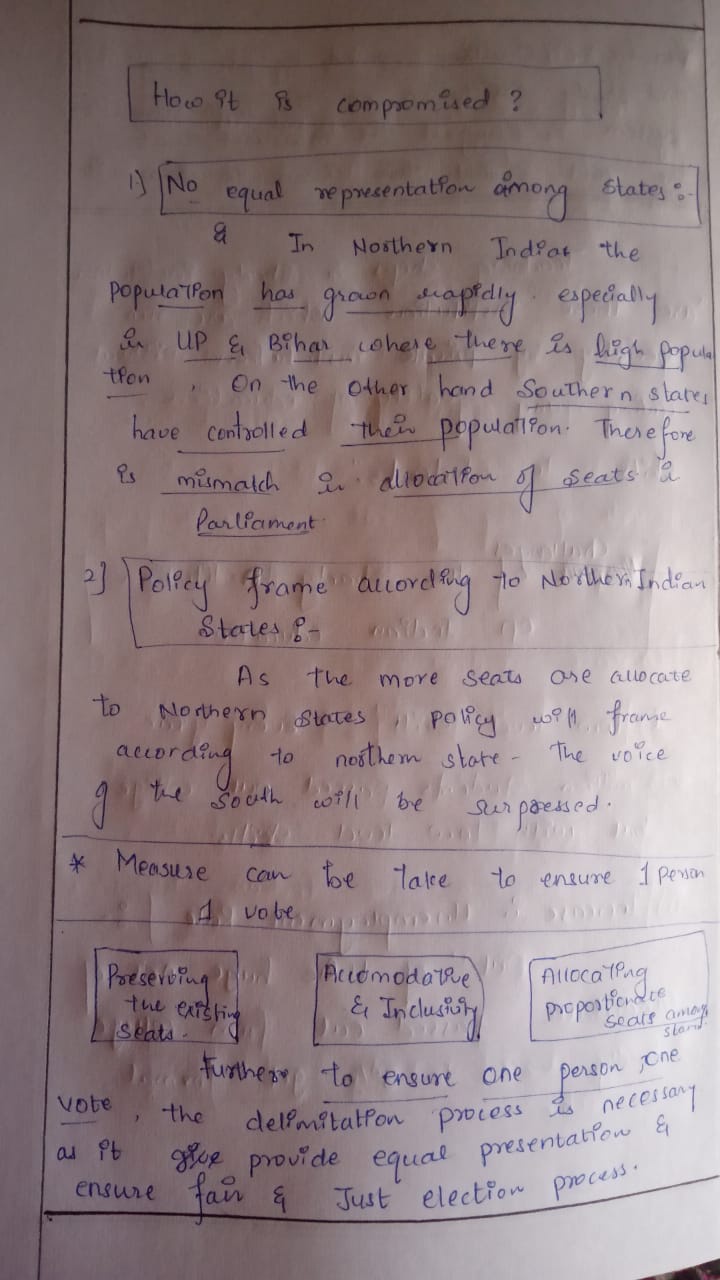 How it is compromised ?
1) No equal representation among States :-
& In Northern Indias the
population has grown rapidly. especially
in UP & Bihar where there is high popula
tion , On the other hand Southern states
have controlled their population. Therefore
is mismatch in allocation of seats in
Parliament.
2) Policy frame according to Northern Indian
States :-
As the more seats are allocate
to Northern states , policy will frame
according to northern state - The voice
of the south will be surpressed.
* Measure can be take to ensure 1 person
1 vote
Preserving
the existing
seats.
Accomodative
& Inclusivity
Allocating
proportionate
seats among
Furthere, to ensure one person, one
vote , the delimitation process is necessary
as it provide equal presentation &
ensure fair & Just election process.